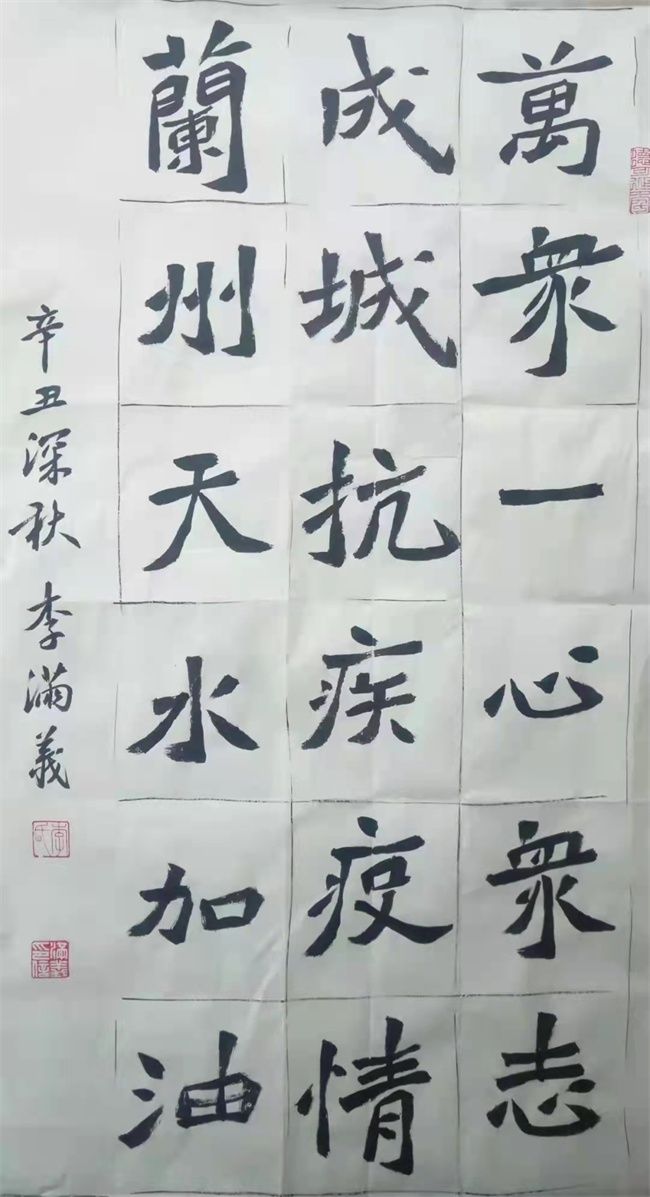 萬衆一心衆志
成城抗疾疫情
蘭州天水加油
辛丑深秋 李滿義
李氏